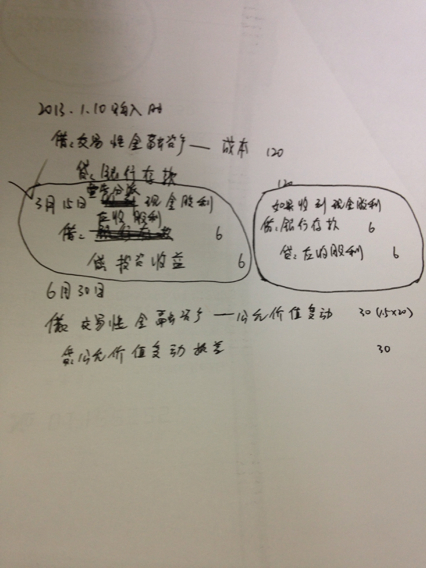 2013.1.10购入时
借:交易性金融资产——成本 120
贷:银行存款
120
宣告分派
3月15日 现金股利
应收股利
借: 6
贷 投资收益 6
如果收到现金股利
借:银行存款 6
贷:应收股利 6
6月30日
借:交易性金融资产——公允价值变动 30(1.5×20)
贷:公允价值变动损益 30